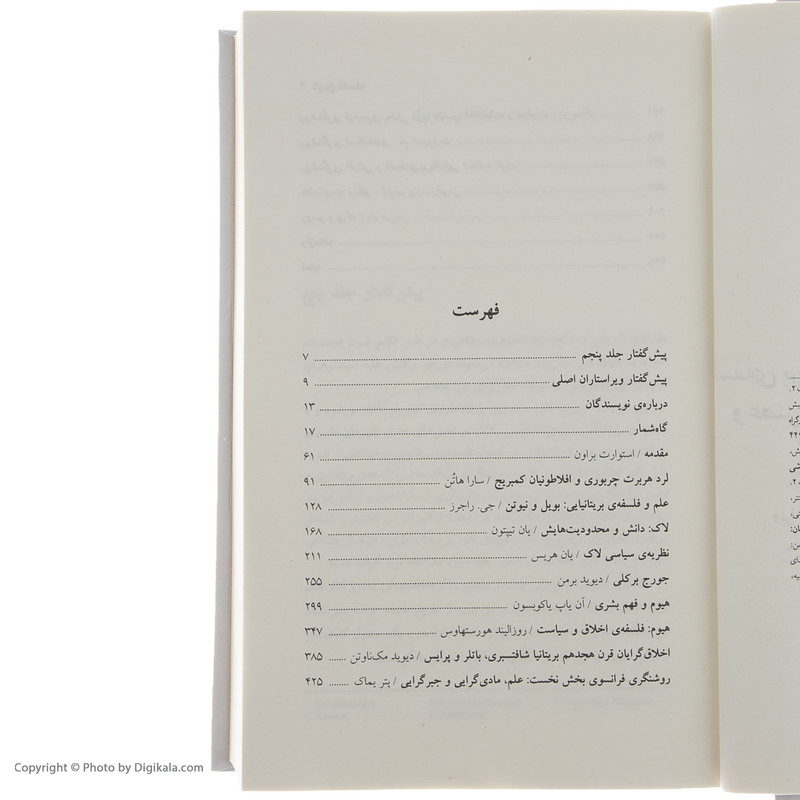 فهرست
پیش‌گفتار جلد پنجم ............ ۷
پیش‌گفتار ویراستاران اصلی ............ ۹
درباره‌ی نویسندگان ............ ۱۳
گاه‌شمار ............ ۱۷
مقدمه / استوارت براون ............ ۶۱
لرد هربرت چربوری و افلاطونیان کمبریج / سارا هاتُن ............ ۹۱
علم و فلسفه‌ی بریتانیایی: بویل و نیوتن / جی. راجرز ............ ۱۲۸
لاک: دانش و محدودیت‌هایش / یان تیپتون ............ ۱۶۸
نظریه‌ی سیاسی لاک / یان هریس ............ ۲۱۱
جورج برکلی / دیوید برمن ............ ۲۵۵
هیوم و فهم بشری / آن یاپ یاکوبسون ............ ۲۹۹
هیوم: فلسفه‌ی اخلاق و سیاست / روزالیند هورستهاوس ............ ۳۴۷
اخلاق‌گرایان قرن هجدهم بریتانیا شافتسبری، باتلر و پرایس / دیوید مک‌ناوتن ...... ۳۸۵
روشنگری فرانسوی بخش نخست: علم، مادی‌گرایی و جبرگرایی / پتر یماک ........ ۴۲۵
Copyright © Photo by Digikala.com